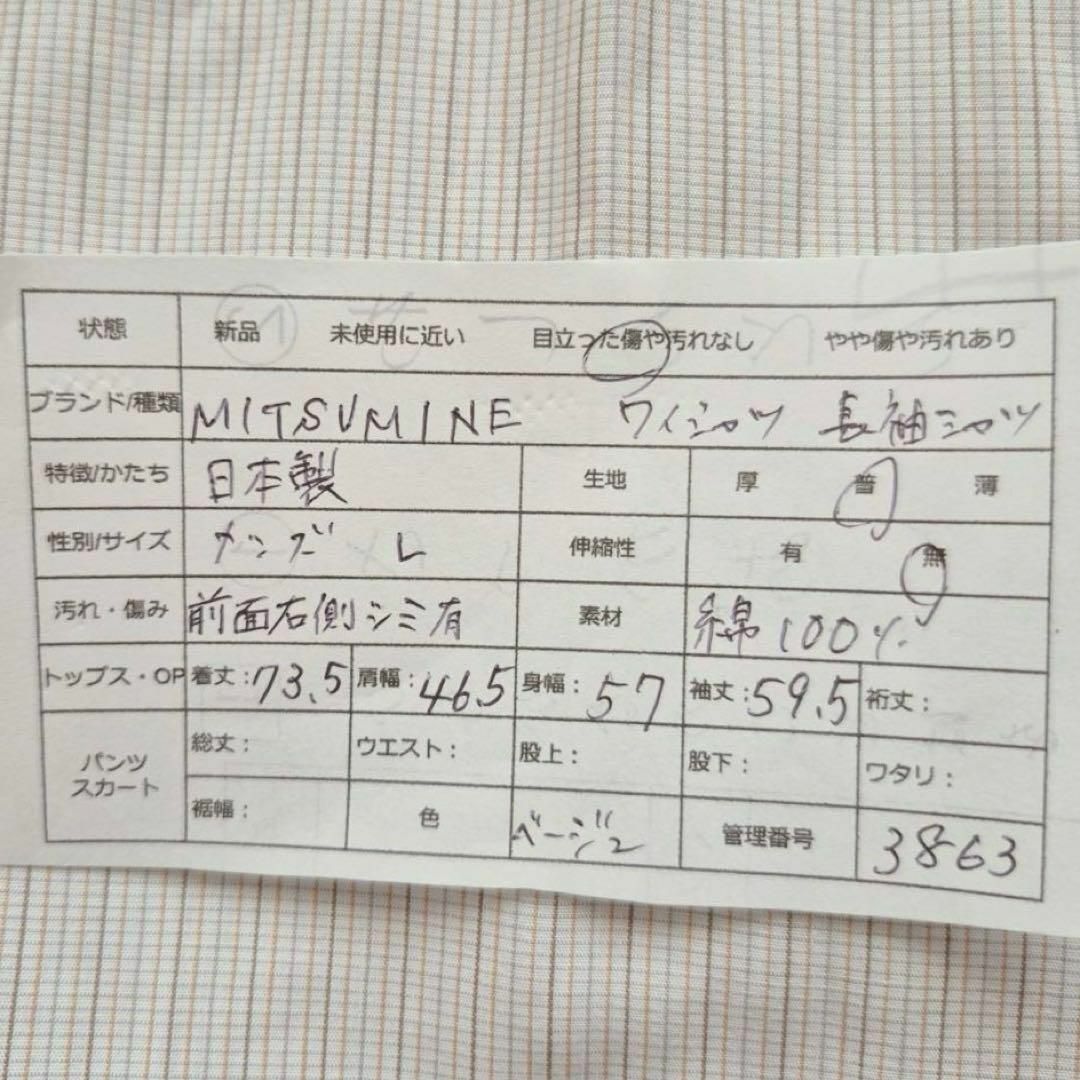 状態 新品 未使用に近い 目立った傷や汚れなし やや傷や汚れあり
ブランド/種類 MITSUMINE ワイシャツ 長袖シャツ
特徴/かたち 日本製 生地 厚 普 薄
性別/サイズ メンズ L 伸縮性 有 無
汚れ・傷み 前面右側シミ有 素材 綿100%
トップス・OP 着丈:73.5 肩幅:46.5 身幅:57 袖丈:59.5 裄丈:
パンツ
スカート
総丈: ウエスト: 股上: 股下: ワタリ:
裾幅: 色 ベージュ 管理番号 3863